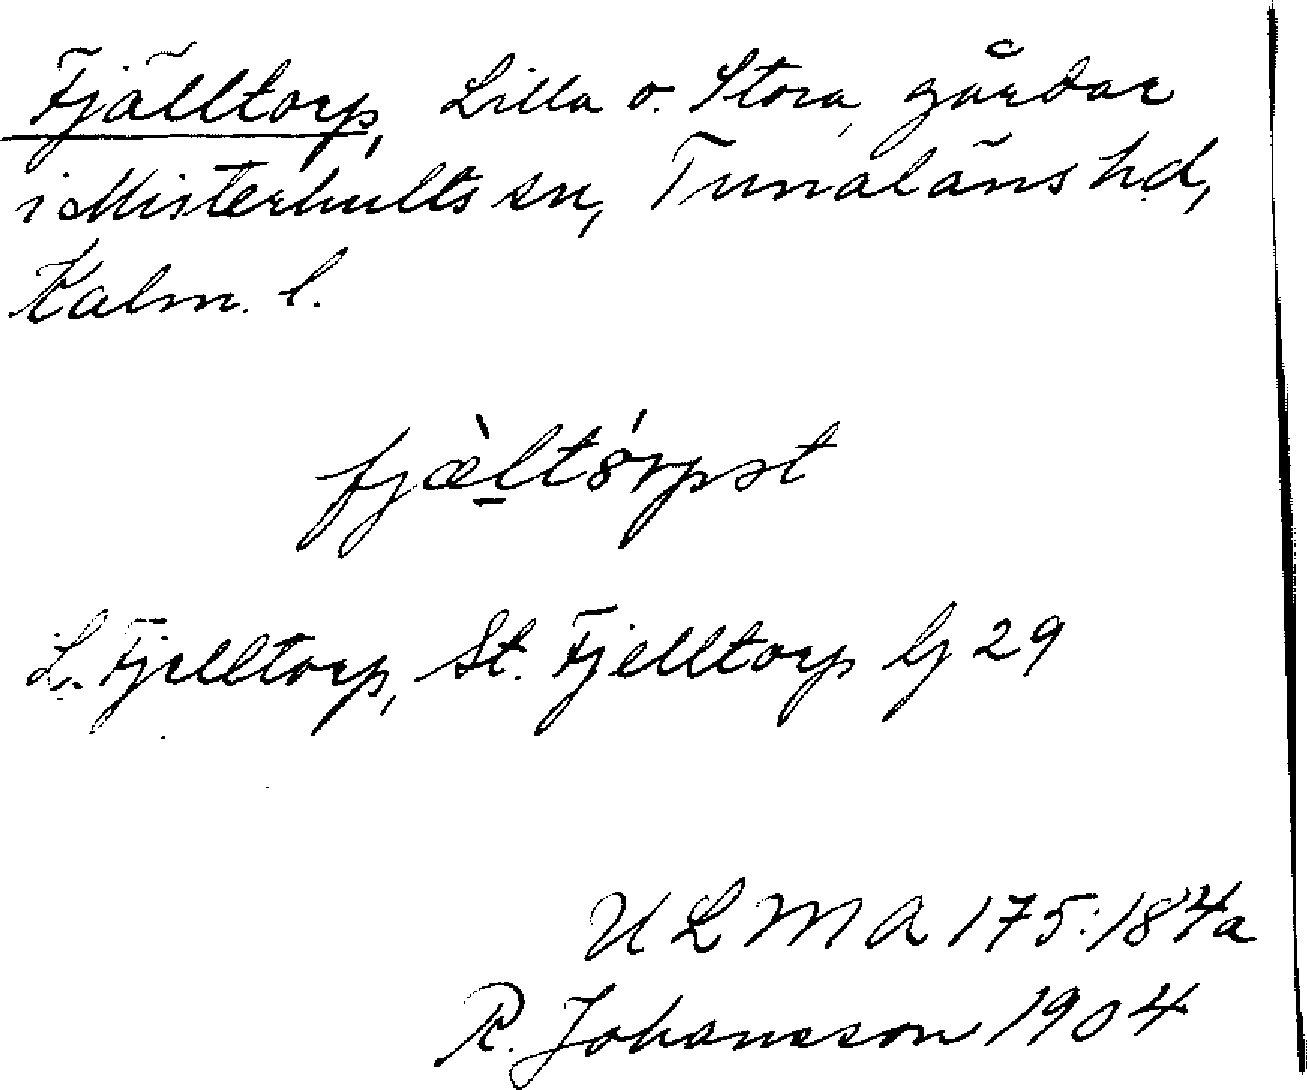 Fjälltorp, Lilla o. Stora, gårdar
i Misterhults sn, Tunaläns hd,
Kalm. l.
L. Fjelltorp, St. Fjelltorp Gj 29
ULMA 175:184a
R. Johansson 1904